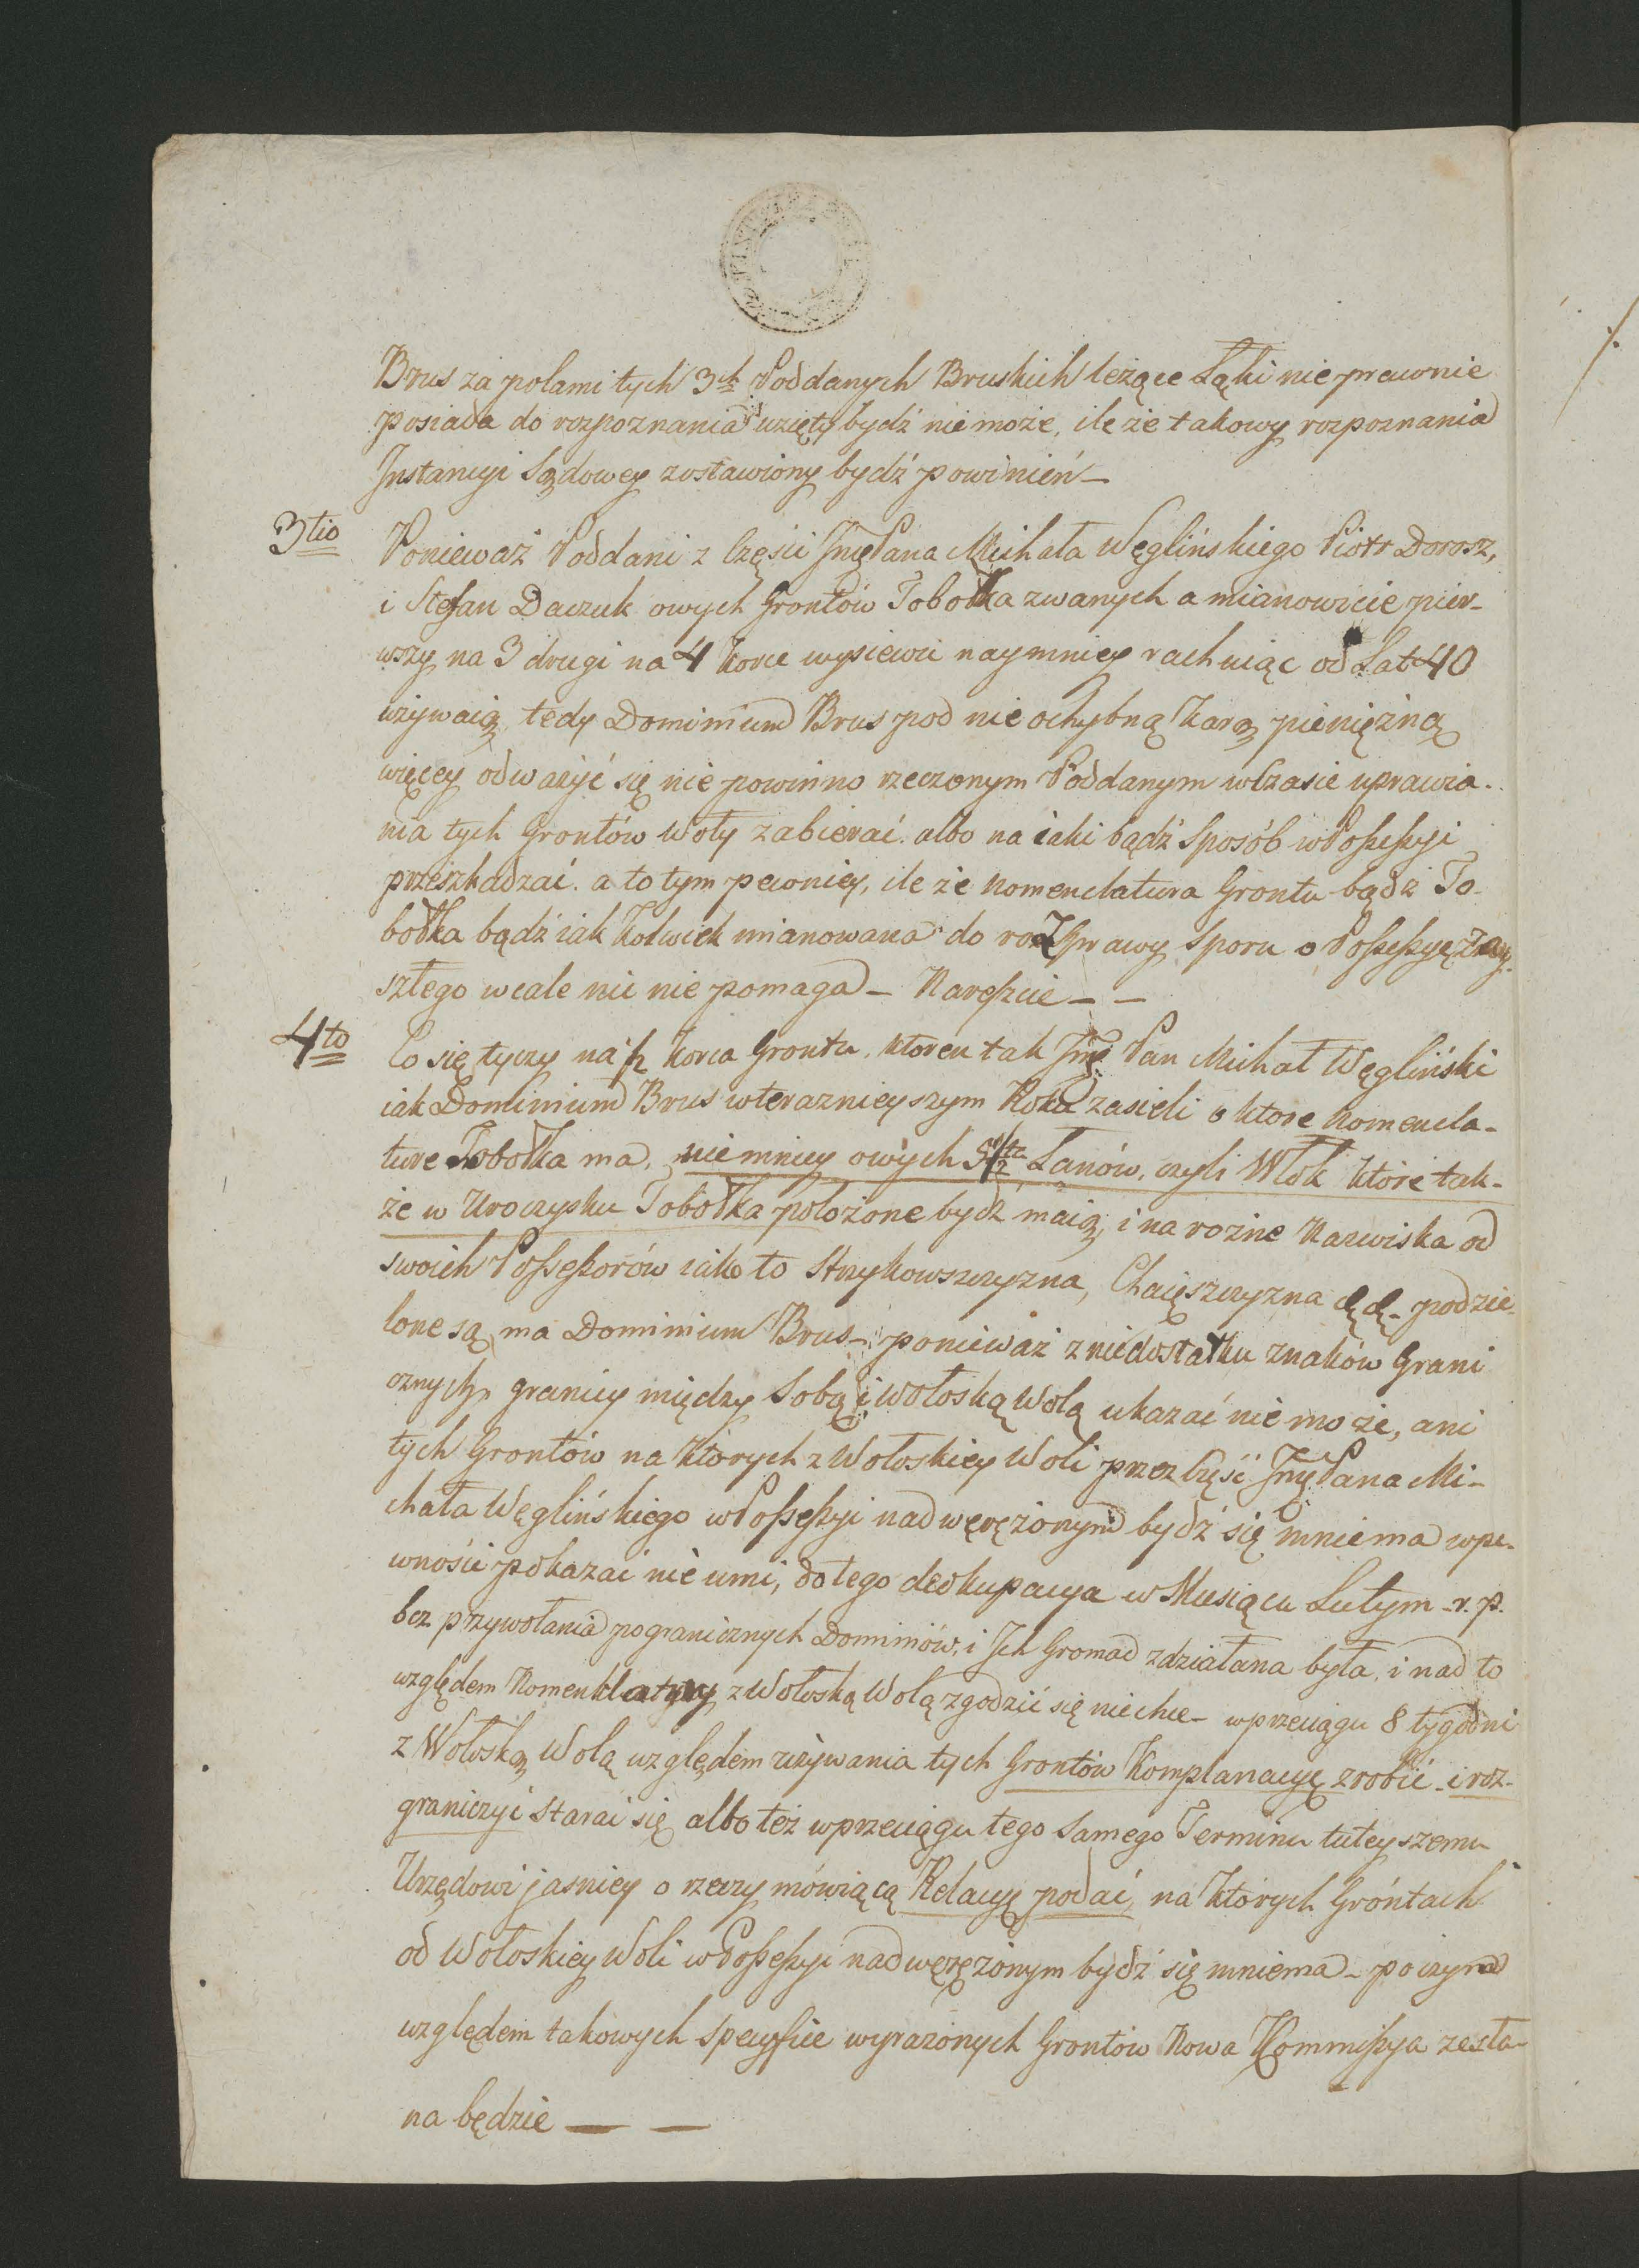 Brus za polami tych 3ch Poddanych Bruskich leżące Łąki nie prawnie
posiada do rozpoznania wzięty bydź nie może, ile że takowy rozpoznania
Instancyi Sądowey zostawiony bydź powinień –
3tio Ponieważ Poddani z Części Jmę Pana Michała Węglińskiego Piotr Dorosz,
i Stefan Daczuk owych Grontów Tobołka zwanych a mianowicie pier-
wszy na 3 drugi na 4 Korce wysiewu naymniey rachuiąc od Lat 40
używaią, tedy Dominium Brus pod nie ochybną Karą pieniężną
więcey odważyć się nie powinno rzeczonym Poddanym w Czasie uprawia-
nia tych Grontów Woły zabierać albo na iaki bądź Sposób w Possessyi
przeszkadzać. a to tym pewniey, ile że Nomenclatura Grontu bądź To-
bołka bądź iak Kolwiek mianowana do rozprawy Sporu o Possessyę zay-
szłego wcale nic nie pomaga – Nareszcie – –
4to Co się tyczy na ½ Korca Grontu, któren tak Jmę Pan Michał Węgliński
iak Dominium Brus w terazniejszym Roku zasieli o które Nomencla-
ture Tobołka ma, niemniey owych 5 1/2 Łanów, czyli Włók które tak-
że w Uroczysku Tobołka położone bydź maią, i na rożne Nazwiska od
swoich Possessorów iako to Strykowszczyzna, Chacięszczyzna &. &. podzie-
lone są, ma Dominium Brus – ponieważ z niedostatku znaków Grani
cznych, granicy między Sobą i Wołoską Wolą ukazać nie może, ani
tych Grontów na których z Wołoskiey Woli przez Część Jmę Pana Mi-
chała Węglińskiego w Possessyi nadwerężonym bydź się mniema w pe-
wności pokazać nie umi, do tego deokupacya w Miesiącu Lutym r. p.
bez przywołania pogranicznych Dominiów, i Ich Gromad zdziałana była, i nad to
względem Nomenklatury z Wołoską Wolą zgodzić się nie chce – w przeciągu 8 tygodni
z Wołoską Wolą względem używania tych Grontów Komplanacyę zrobić i roz-
graniczyć starać się albo też w przeciągu tego Samego Terminu tuteyszemu
Urzędowi jasniey o rzeczy mówiącą Relacyę podać, na których Gróntach
od Wołoskiey Woli w Possessyi nadwerężonym bydź się mniema – po czym
względem takowych specyfice wyrażonych Grontów Nowa Kommissya zesła-
na będzie — —